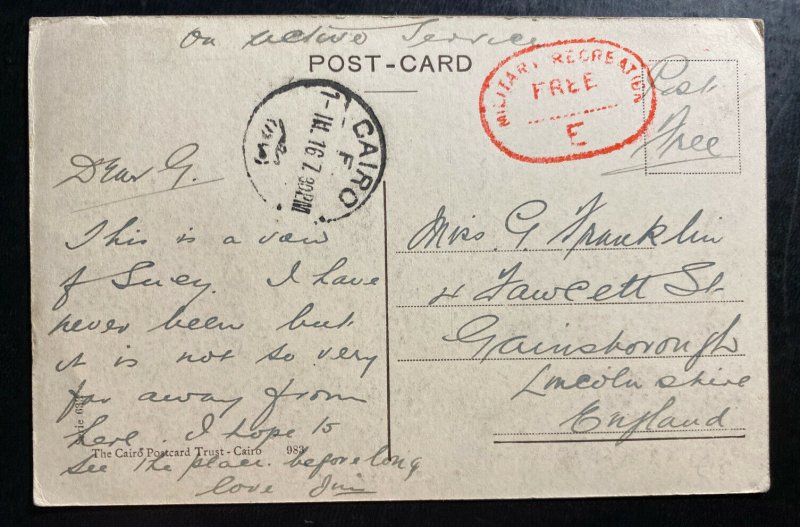 On Active Service
POST-CARD
MILITARY RECREATION
FREE
E
Post
Free
CAIRO
F
1-III.16 7.30PM
Dear G.
This is a view
of Suez. I have
never been but
it is not so very
far away from
here. I hope to
see the place before long
love Jim
Miss G. Franklin
4 Fawcett St
Gainsborough
Lincolnshire
England
The Cairo Postcard Trust - Cairo 983